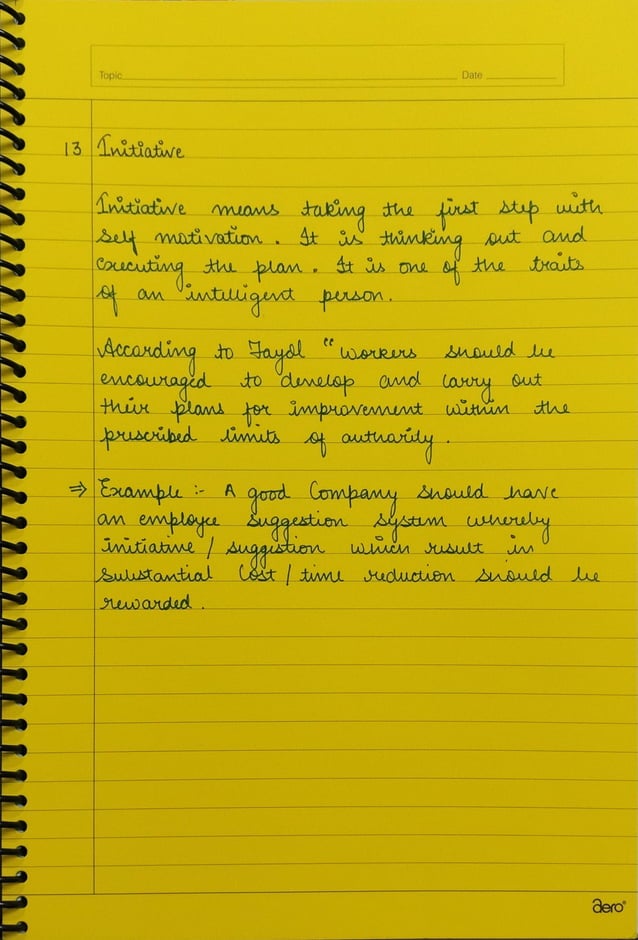 Topic Date
13 Initiative
Initiative means taking the first step with
self motivation. It is thinking out and
executing the plan. It is one of the traits
of an intelligent person.
According to Fayol "workers should be
encouraged to develop and carry out
their plans for improvement within the
prescribed limits of authority.
⇒ Example :- A good Company should have
an employee suggestion system whereby
initiative / suggestion which result in
substantial Cost / time reduction should be
rewarded.
aero